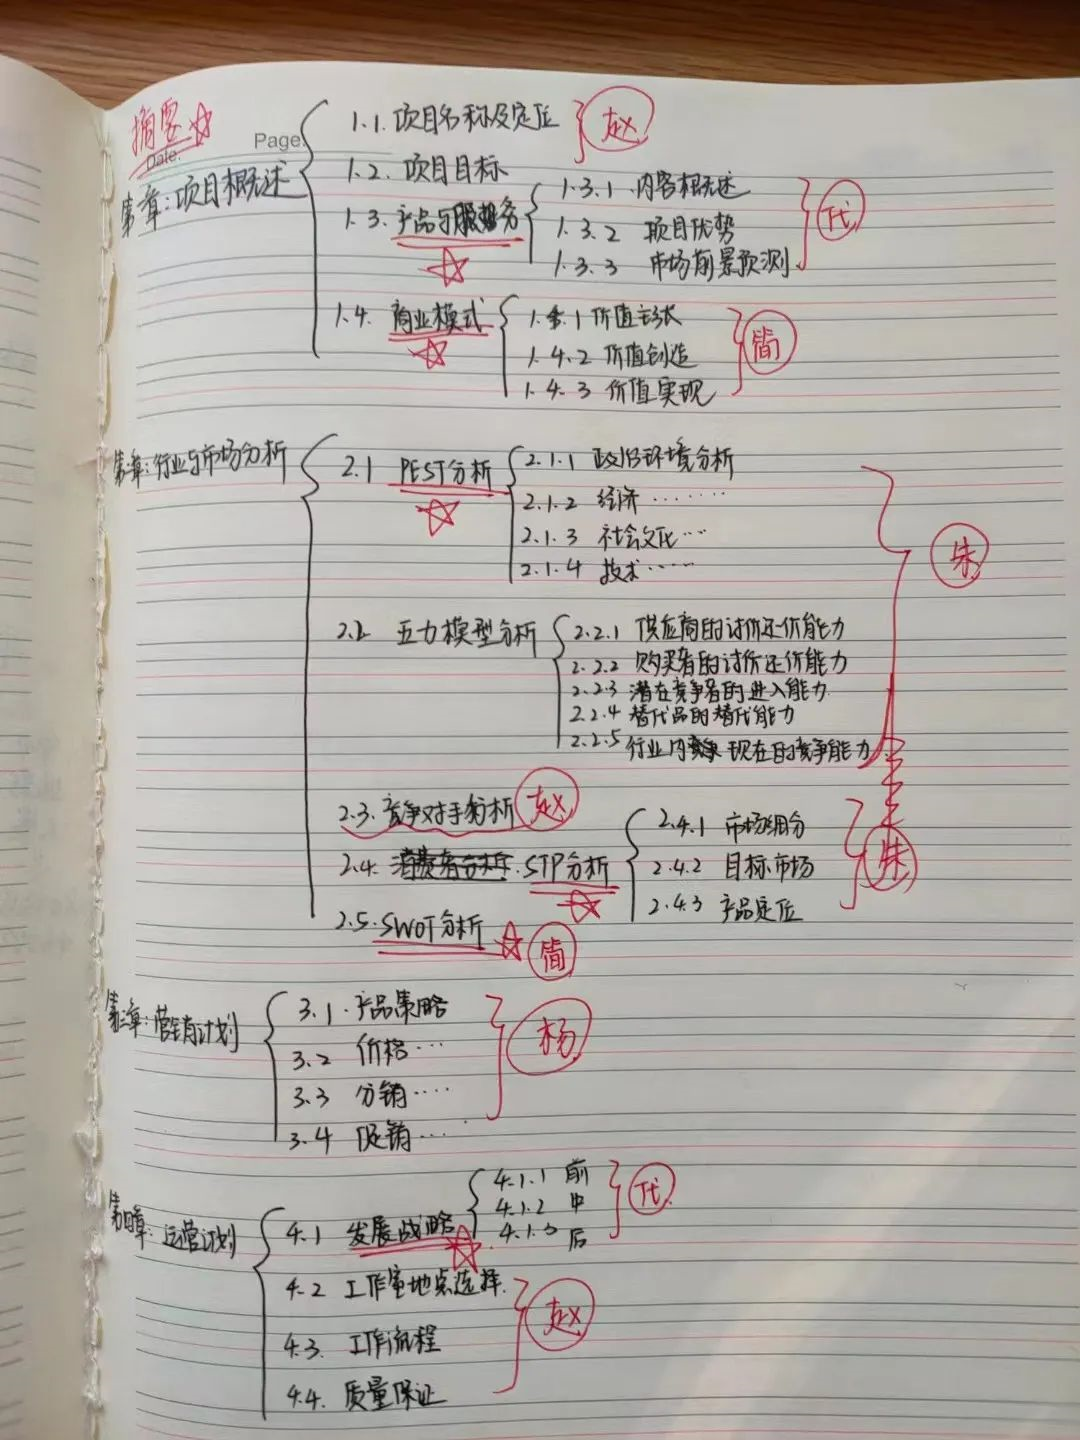 摘要
Page:
Date:
第一章:项目概述
1.1.项目名称及定位 赵
1.2.项目目标
1.3.产品与服务
1.3.1 内容概述
1.3.2 项目优势
1.3.3 市场前景预测
代
1.4.商业模式
1.4.1 价值主张
1.4.2 价值创造
1.4.3 价值实现
简
第二章:行业与市场分析
2.1 PEST分析
2.1.1 政治环境分析
2.1.2 经济……
2.1.3 社会文化…
2.1.4 技术……
2.2 五力模型分析
2.2.1 供应商的讨价还价能力
2.2.2 购买者的讨价还价能力
2.2.3 潜在竞争者的进入能力
2.2.4 替代品的替代能力
2.2.5 行业内 现在的竞争能力
朱
2.3.竞争对手分析 赵
2.4.消费者分析.STP分析
2.4.1 市场细分
2.4.2 目标市场
2.4.3 产品定位
朱
2.5.SWOT分析 简
第三章:营销计划
3.1.产品策略
3.2 价格…
3.3 分销……
3.4 促销…
杨
第四章:运营计划
4.1 发展战略
4.1.1 前
4.1.2 中
4.1.3 后
代
4.2 工作室地点选择
4.3.工作流程
4.4.质量保证
赵